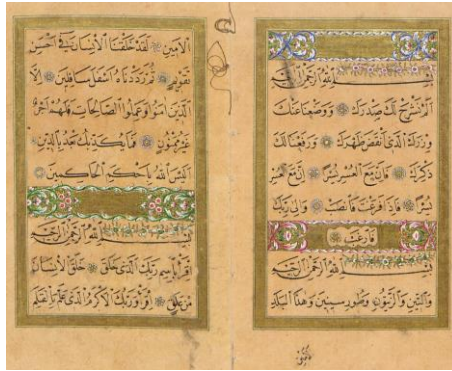 بِسْمِ اللّٰهِ الرَّحْمٰنِ الرَّحِيمِ
اَلَمْ نَشْرَحْ لَكَ صَدْرَكَ ۞ وَوَضَعْنَا عَنْكَ
وِزْرَكَ اَلَّذٖى اَنْقَضَ ظَهْرَكَ ۞ وَرَفَعْنَا لَكَ
ذِكْرَكَ ۞ فَاِنَّ مَعَ الْعُسْرِ يُسْرًا ۞ اِنَّ مَعَ الْعُسْرِ
يُسْرًا ۞ فَاِذَا فَرَغْتَ فَانْصَبْ ۞ وَاِلٰى رَبِّكَ
فَارْغَبْ
بِسْمِ اللّٰهِ الرَّحْمٰنِ الرَّحِيمِ
وَالتّٖينِ وَالزَّيْتُونِ ۞ وَطُورِ سٖينٖينَ ۞ وَهٰذَا الْبَلَدِ
الْاَمٖينِ ۞ لَقَدْ خَلَقْنَا الْاِنْسَانَ فٖى اَحْسَنِ
تَقْوٖيمٍ ۞ ثُمَّ رَدَدْنَاهُ اَسْفَلَ سَافِلٖينَ ۞ اِلَّا
الَّذٖينَ اٰمَنُوا وَعَمِلُوا الصَّالِحَاتِ فَلَهُمْ اَجْرٌ
غَيْرُ مَمْنُونٍ ۞ فَمَا يُكَذِّبُكَ بَعْدُ بِالدّٖينِ
اَلَيْسَ اللّٰهُ بِاَحْكَمِ الْحَاكِمٖينَ ۞
بِسْمِ اللّٰهِ الرَّحْمٰنِ الرَّحِيمِ
اِقْرَأْ بِاسْمِ رَبِّكَ الَّذٖى خَلَقَ ۞ خَلَقَ الْاِنْسَانَ
مِنْ عَلَقٍ ۞ اِقْرَأْ وَرَبُّكَ الْاَكْرَمُ الَّذٖى عَلَّمَ بِالْقَلَمِ